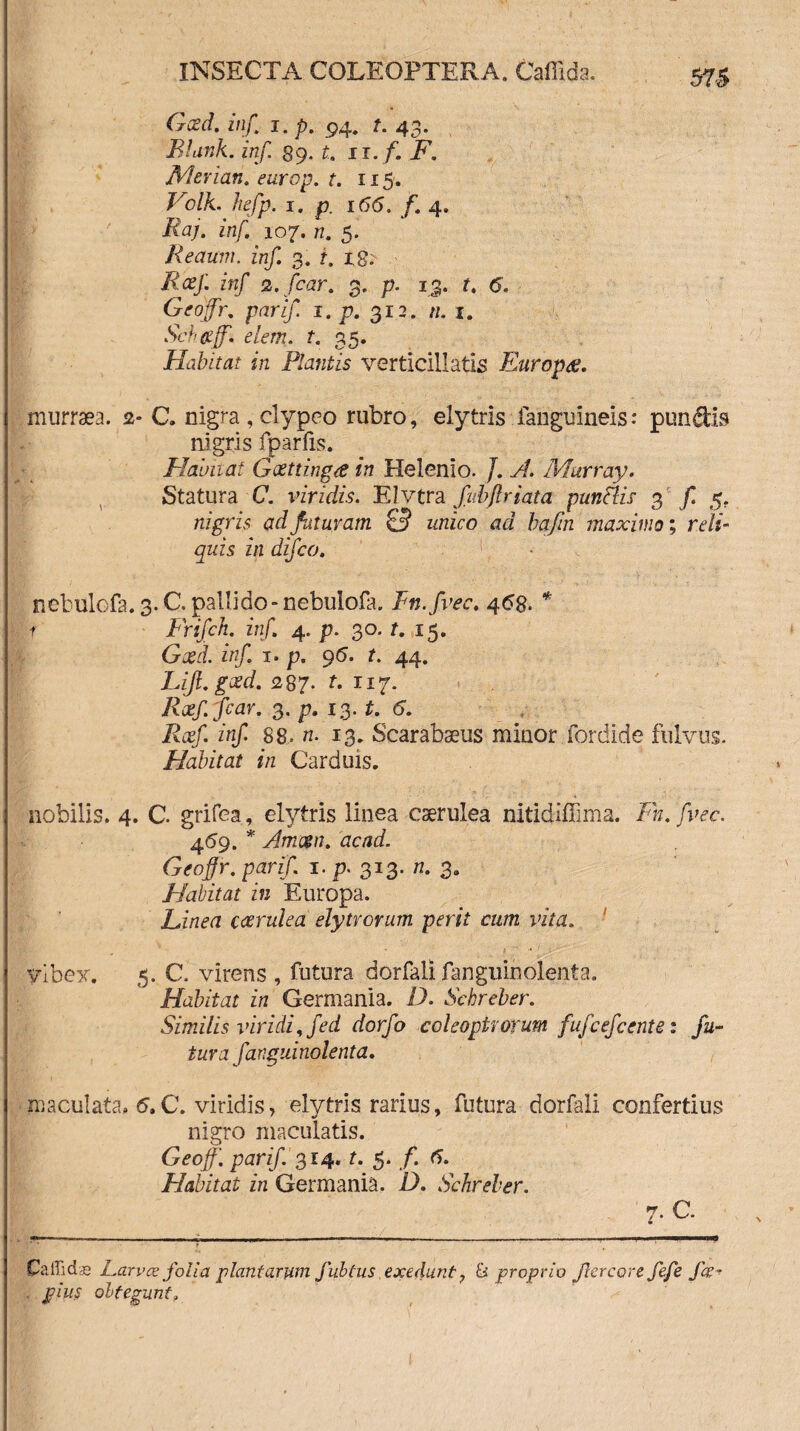 INSECTA COLEOPTERA. Caſſida. 575
Gœd. inſ. 1. p. 94. t. 43.
Blank. inſ. 89. t. 11. f. F.
Merian. europ. t. 115.
Volk. heſp. 1. p. 166. f. 4.
Raj. inſ. 107. n. 5.
Reaum. inſ. 3. t. 18.
Rœſ. inſ 2. ſcar. 3. p. 13. t. 6.
Geoffr. pariſ. 1. p. 312. n. 1.
Schæff. elem. t. 35.
Habitat in Plantis verticillatis Europæ.
murræa. 2. C. nigra, clypeo rubro, elytris ſanguineis: punctis
nigris ſparſis.
Habitat Gœttingæ in Helenio. J. A. Murray.
Statura C. viridis. Elytra ſubſtriata punctis 3 ſ. 5.
nigris ad ſuturam & unico ad baſin maximo; reli-
quis in diſco.
nebuloſa. 3. C. pallido-nebuloſa. Fn. ſvec. 468. *
Friſch. inſ. 4. p. 30. t. 15.
Gœd. inſ. 1. p. 96. t. 44.
Liſt. gœd. 287. t. 117.
Rœſ. ſcar. 3. p. 13. t. 6.
Rœſ. inſ. 88. n. 13. Scarabæus minor ſordide fulvus.
Habitat in Carduis.
nobilis. 4. C. griſea, elytris linea cærulea nitidiſſima. Fn. ſvec.
469. * Amœn. acad.
Geoffr. pariſ. 1. p. 313. n. 3.
Habitat in Europa.
Linea cærulea elytrorum perit cum vita.
vibex. 5. C. virens, ſutura dorſali ſanguinolenta.
Habitat in Germania. D. Schreber.
Similis viridi, ſed dorſo coleoptrorum fuſceſcente: ſu-
tura ſanguinolenta.
maculata. 6. C. viridis, elytris rarius, ſutura dorſali confertius
nigro maculatis.
Geoff. pariſ. 314. t. 5. f. 6.
Habitat in Germania. D. Schreber.
7. C.
Caſſidæ Larvæ folia plantarum ſubtus exedunt, & proprio ſtercore ſeſe ſæ-
pius obtegunt.